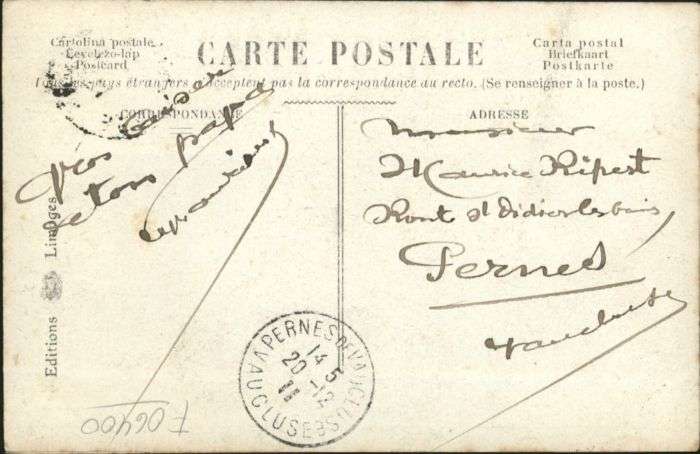 Cartolina postale
Levelezo-lap
Postcard
CARTE POSTALE
Carta postal
Briefkaart
Postkarte
Tous les pays étrangers n'acceptent pas la correspondance au recto. (Se renseigner à la poste.)
CORRESPONDANCE
gros
de ton papa
ADRESSE
Monsieur
Maurice Ripert
Pont St Didier les bains
Pernes
Vaucluse
Editions Limoges
PERNES DE VAUCLUSE
VAUCLUSE
14 5
20 -12
11
F06400